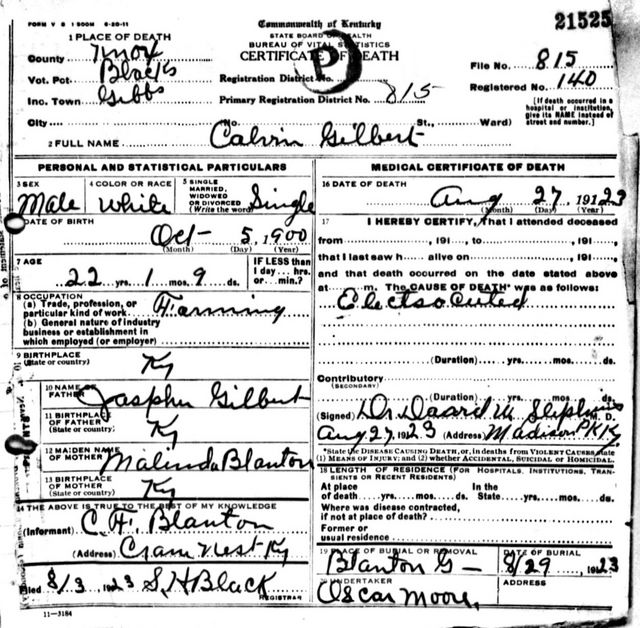 FORM V S 1 500M 6-20-11
Commonwealth of Kentucky
21525
STATE BOARD OF HEALTH
BUREAU OF VITAL STATISTICS
CERTIFICATE OF DEATH
1 PLACE OF DEATH
County Knox
Vot. Pct. Blacks
Inc. Town Gibbs
City
Registration District No.
Primary Registration District No. 815
File No. 815
Registered No. 140
(No. St., Ward)
[If death occurred in a
hospital or institution,
give its NAME instead of
street and number.]
2 FULL NAME Calvin Gilbert
PERSONAL AND STATISTICAL PARTICULARS
3 SEX
Male
4 COLOR OR RACE
White
5 SINGLE
MARRIED,
WIDOWED
OR DIVORCED
(Write the word) Single
DATE OF BIRTH
Oct 5, 1900
(Month) (Day) (Year)
7 AGE
22 yrs. 1 mos. 9 ds.
IF LESS than
1 day... hrs.
or... min.?
8 OCCUPATION
(a) Trade, profession, or
particular kind of work Farming
(b) General nature of industry
business or establishment in
which employed (or employer)
9 BIRTHPLACE
(State or country) Ky
10 NAME OF
FATHER Gilbert
11 BIRTHPLACE
OF FATHER
(State or country) Ky
12 MAIDEN NAME
OF MOTHER Malinda Blanton
13 BIRTHPLACE
OF MOTHER
(State or country) Ky
14 THE ABOVE IS TRUE TO THE BEST OF MY KNOWLEDGE
(Informant) C. H. Blanton
(Address) Ky
Filed 8/3 1923 S. H. Black
REGISTRAR
11-3184
MEDICAL CERTIFICATE OF DEATH
16 DATE OF DEATH
Aug 27, 19123
(Month) (Day) (Year)
17 I HEREBY CERTIFY, That I attended deceased
from , 191 , to , 191 ,
that I last saw h alive on , 191 ,
and that death occurred on the date stated above
at m. The CAUSE OF DEATH* was as follows:
Electrocuted
(Duration) yrs. mos. ds.
Contributory
(SECONDARY)
(Duration) yrs. mos. ds.
(Signed) Dr. M. D.
Aug 27, 1923 (Address) Madison
*State the DISEASE CAUSING DEATH, or, in deaths from VIOLENT CAUSES, state
(1) MEANS OF INJURY; and (2) whether ACCIDENTAL, SUICIDAL or HOMICIDAL.
18 LENGTH OF RESIDENCE (FOR HOSPITALS, INSTITUTIONS, TRAN-
SIENTS OR RECENT RESIDENTS)
At place
of death yrs. mos. ds.
In the
State yrs. mos. ds.
Where was disease contracted,
if not at place of death?
Former or
usual residence
19 PLACE OF BURIAL OR REMOVAL
Blanton G
DATE OF BURIAL
8/29, 19123
20 UNDERTAKER
Oscar Moore,
ADDRESS